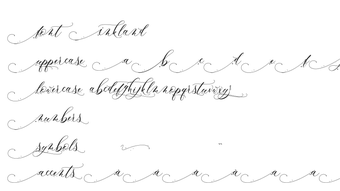 font inkland
uppercase a b c d e f
lowercase abcdefghijklmnopqrstuvwxyz
numbers
symbols
accents a a a a a a a